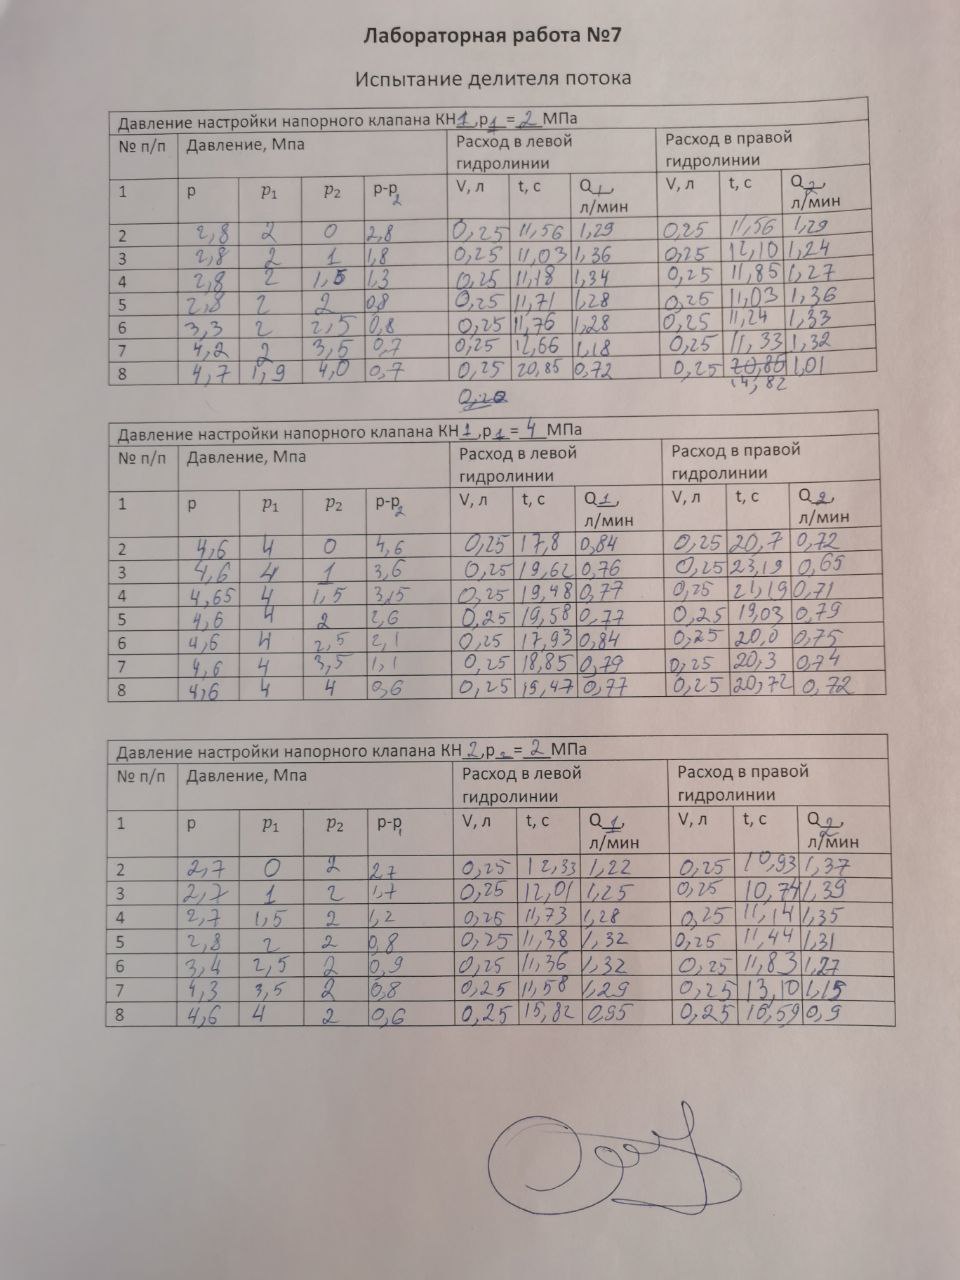 Лабораторная работа №7
Испытание делителя потока
Давление настройки напорного клапана КН 1 ,р 1 = 2 МПа
№ п/п Давление, Мпа Расход в левой гидролинии Расход в правой гидролинии
1 р p1 p2 р-р2 V, л t, с Q 1, л/мин V, л t, с Q 2, л/мин
2 2,8 2 0 2,8 0,25 11,56 1,29 0,25 11,56 1,29
3 2,8 2 1 1,8 0,25 11,03 1,36 0,25 12,10 1,24
4 2,8 2 1,5 1,3 0,25 11,18 1,34 0,25 11,85 1,27
5 2,8 2 2 0,8 0,25 11,71 1,28 0,25 11,03 1,36
6 3,3 2 2,5 0,8 0,25 11,76 1,28 0,25 11,24 1,33
7 4,2 2 3,5 0,7 0,25 12,66 1,18 0,25 11,33 1,32
8 4,7 1,9 4,0 0,7 0,25 20,85 0,72 0,25 20,86 1,01
14,82
Давление настройки напорного клапана КН 1 ,р 1 = 4 МПа
№ п/п Давление, Мпа Расход в левой гидролинии Расход в правой гидролинии
1 р p1 p2 р-р2 V, л t, с Q 1, л/мин V, л t, с Q 2, л/мин
2 4,6 4 0 4,6 0,25 17,8 0,84 0,25 20,7 0,72
3 4,6 4 1 3,6 0,25 19,62 0,76 0,25 23,19 0,65
4 4,65 4 1,5 3,15 0,25 19,48 0,77 0,25 21,19 0,71
5 4,6 4 2 2,6 0,25 19,58 0,77 0,25 19,03 0,79
6 4,6 4 2,5 2,1 0,25 17,93 0,84 0,25 20,0 0,75
7 4,6 4 3,5 1,1 0,25 18,85 0,79 0,25 20,3 0,74
8 4,6 4 4 0,6 0,25 19,47 0,77 0,25 20,72 0,72
Давление настройки напорного клапана КН 2 ,р 2 = 2 МПа
№ п/п Давление, Мпа Расход в левой гидролинии Расход в правой гидролинии
1 р p1 p2 р-р1 V, л t, с Q 1, л/мин V, л t, с Q 2, л/мин
2 2,7 0 2 2,7 0,25 12,33 1,22 0,25 10,93 1,37
3 2,7 1 2 1,7 0,25 12,01 1,25 0,25 10,74 1,39
4 2,7 1,5 2 1,2 0,25 11,73 1,28 0,25 11,14 1,35
5 2,8 2 2 0,8 0,25 11,38 1,32 0,25 11,44 1,31
6 3,4 2,5 2 0,9 0,25 11,36 1,32 0,25 11,83 1,27
7 4,3 3,5 2 0,8 0,25 11,58 1,29 0,25 13,10 1,15
8 4,6 4 2 0,6 0,25 15,82 0,95 0,25 16,59 0,9